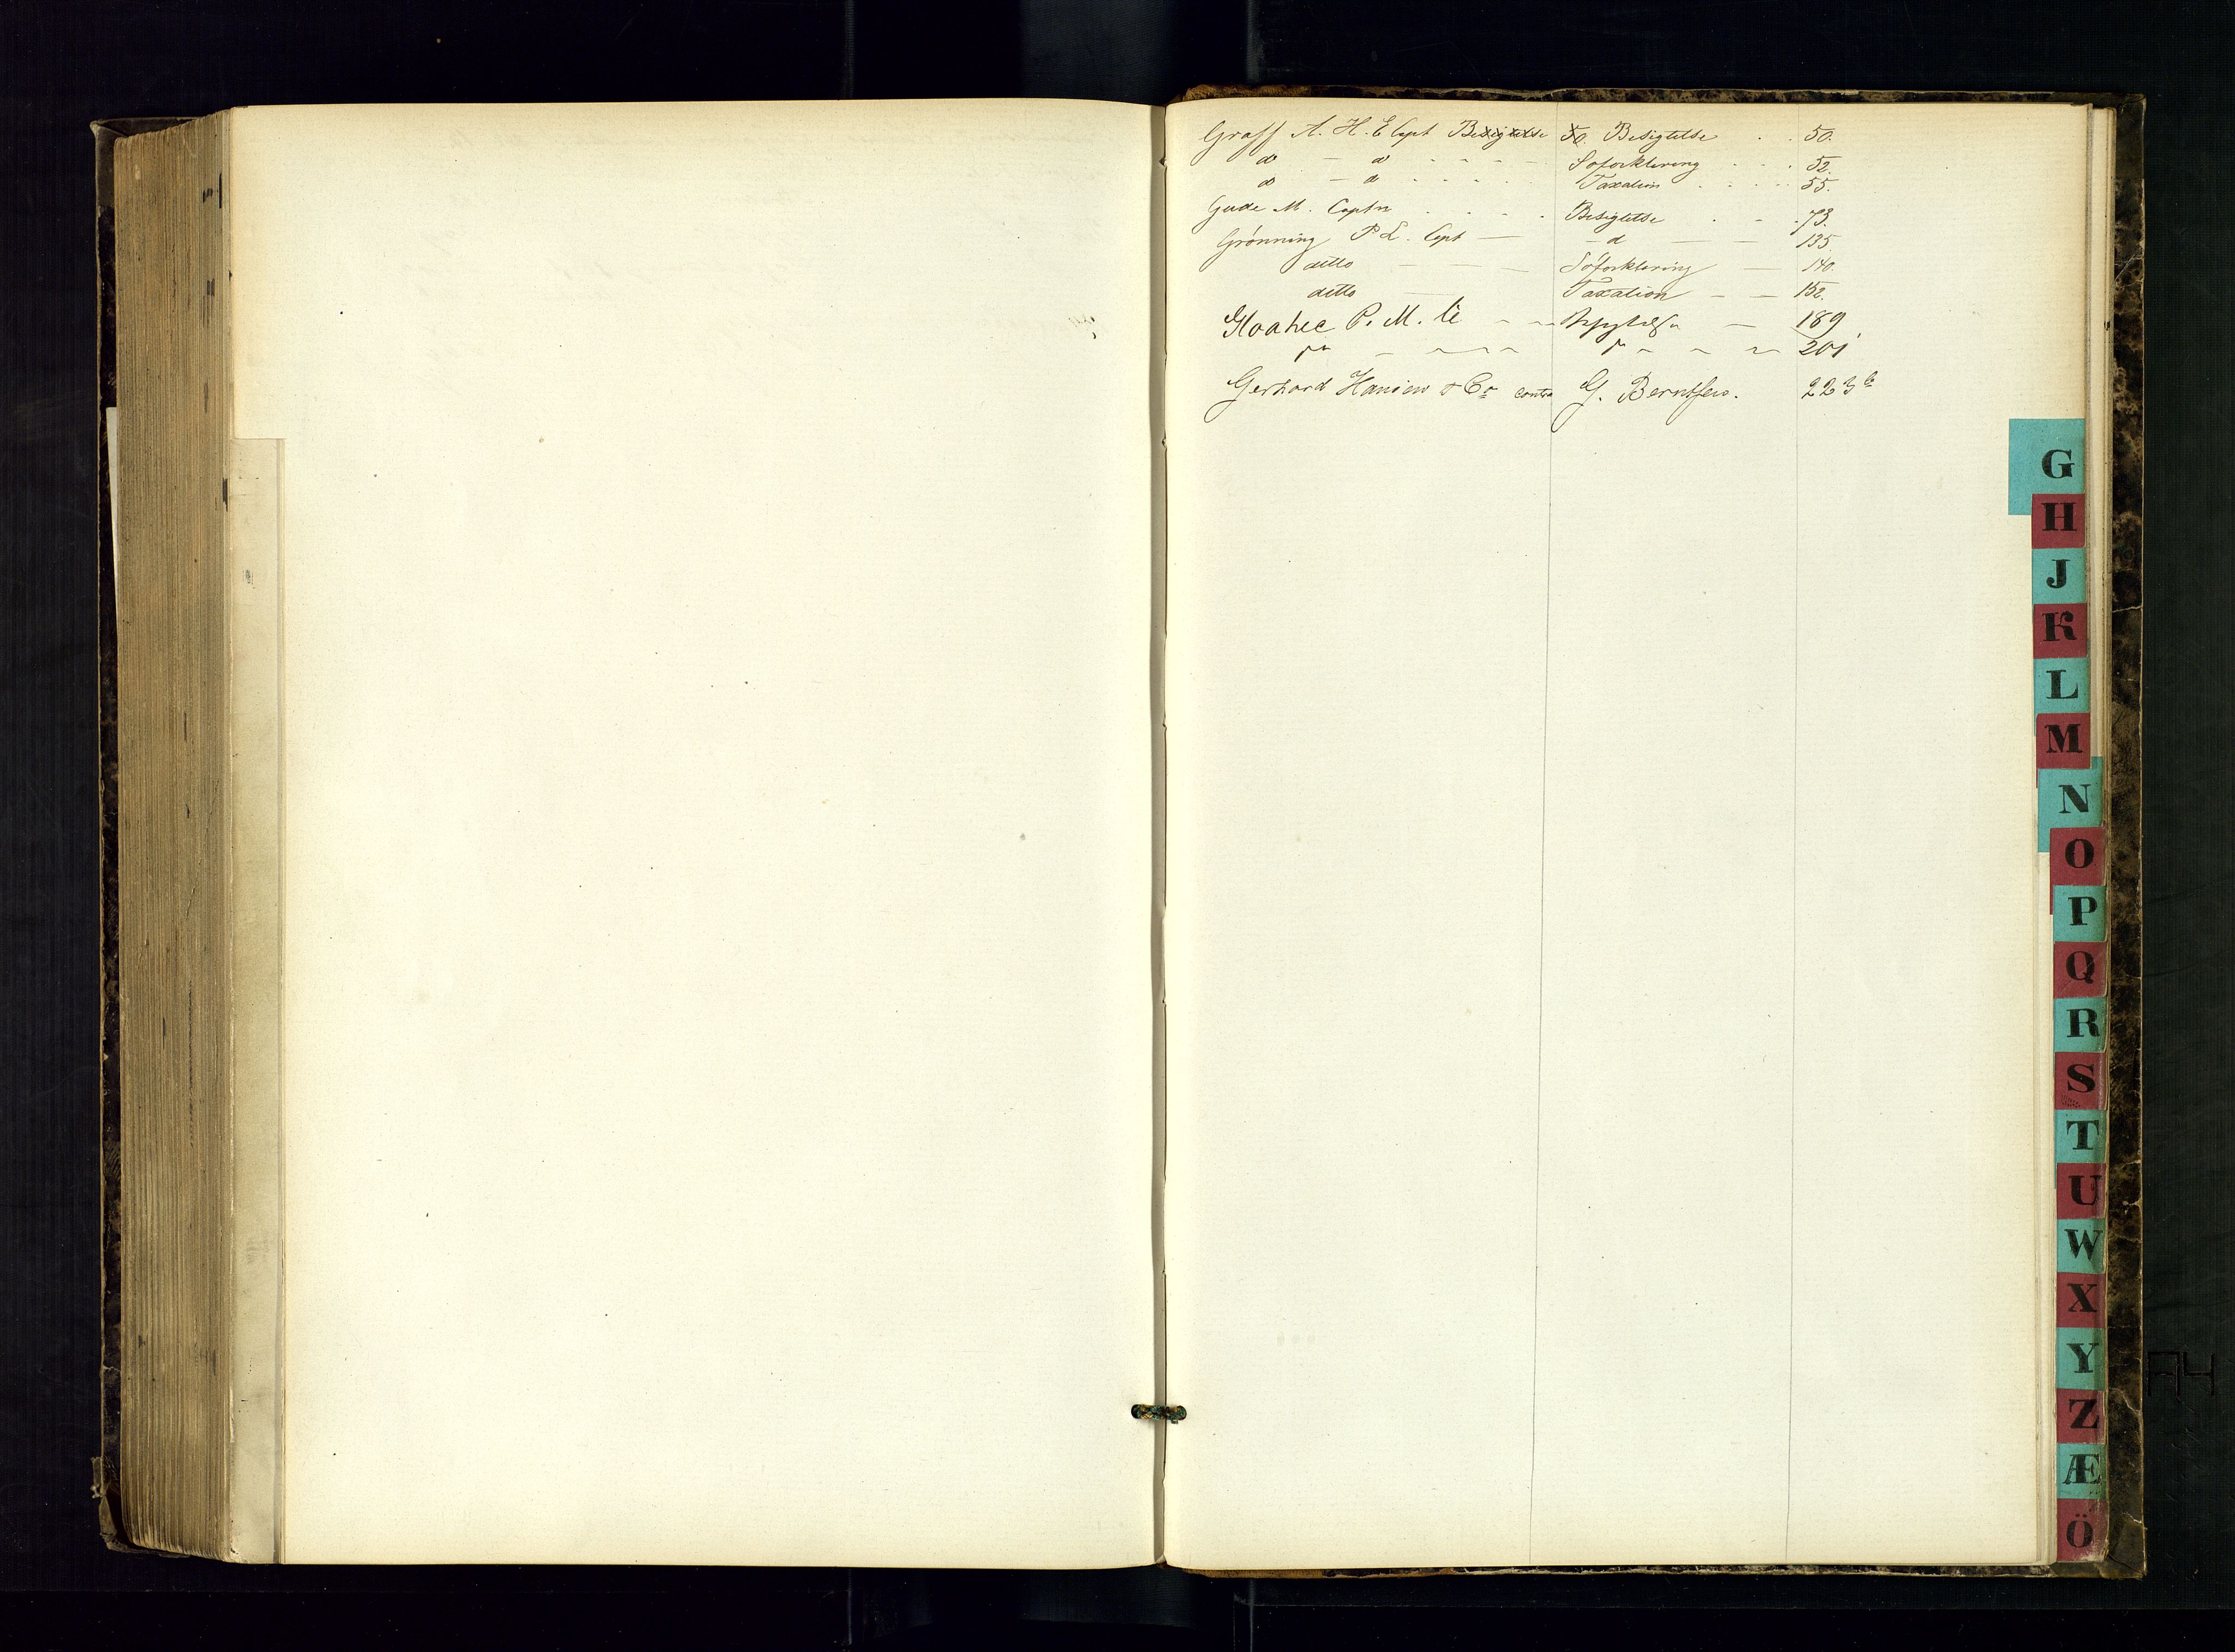 Graff A. H. E Capt Besigtelse 50. Besigtelse . . 50.
do — do - - - - Søforklaring - - . 52.
do — do - - - - Taxation - - - - 55.
Gude M. Captn - - - . Besigtelse - - . 73.
Grønning P L. Capt — - d — — 135.
ditto — — — Søforklaring — 140.
ditto — Taxation — — 152.
Gloahec P. M. le - - — 189
201
Gerhard Hansen & Co contra G. Berntsen. 223 b
G
H
J
K
L
M
N
O
P
Q
R
S
T
U
W
X
Y
Z
Æ
Ö